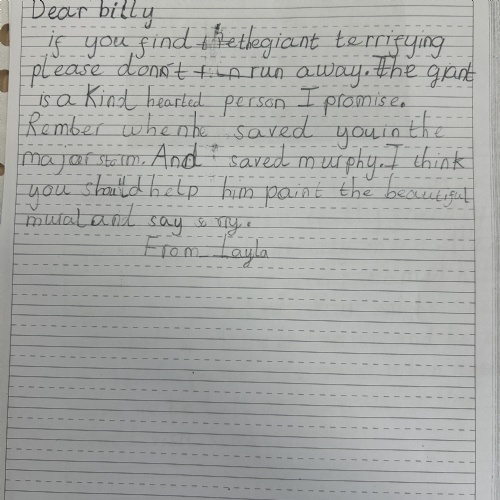 Dear billy
if you find the giant terrifying
please donnt run away. The giant
is a kind hearted person I promise.
Rember when he saved you in the
major storm. And saved murphy. I think
you should help him paint the beautiful
mural and say sory.
From Layla